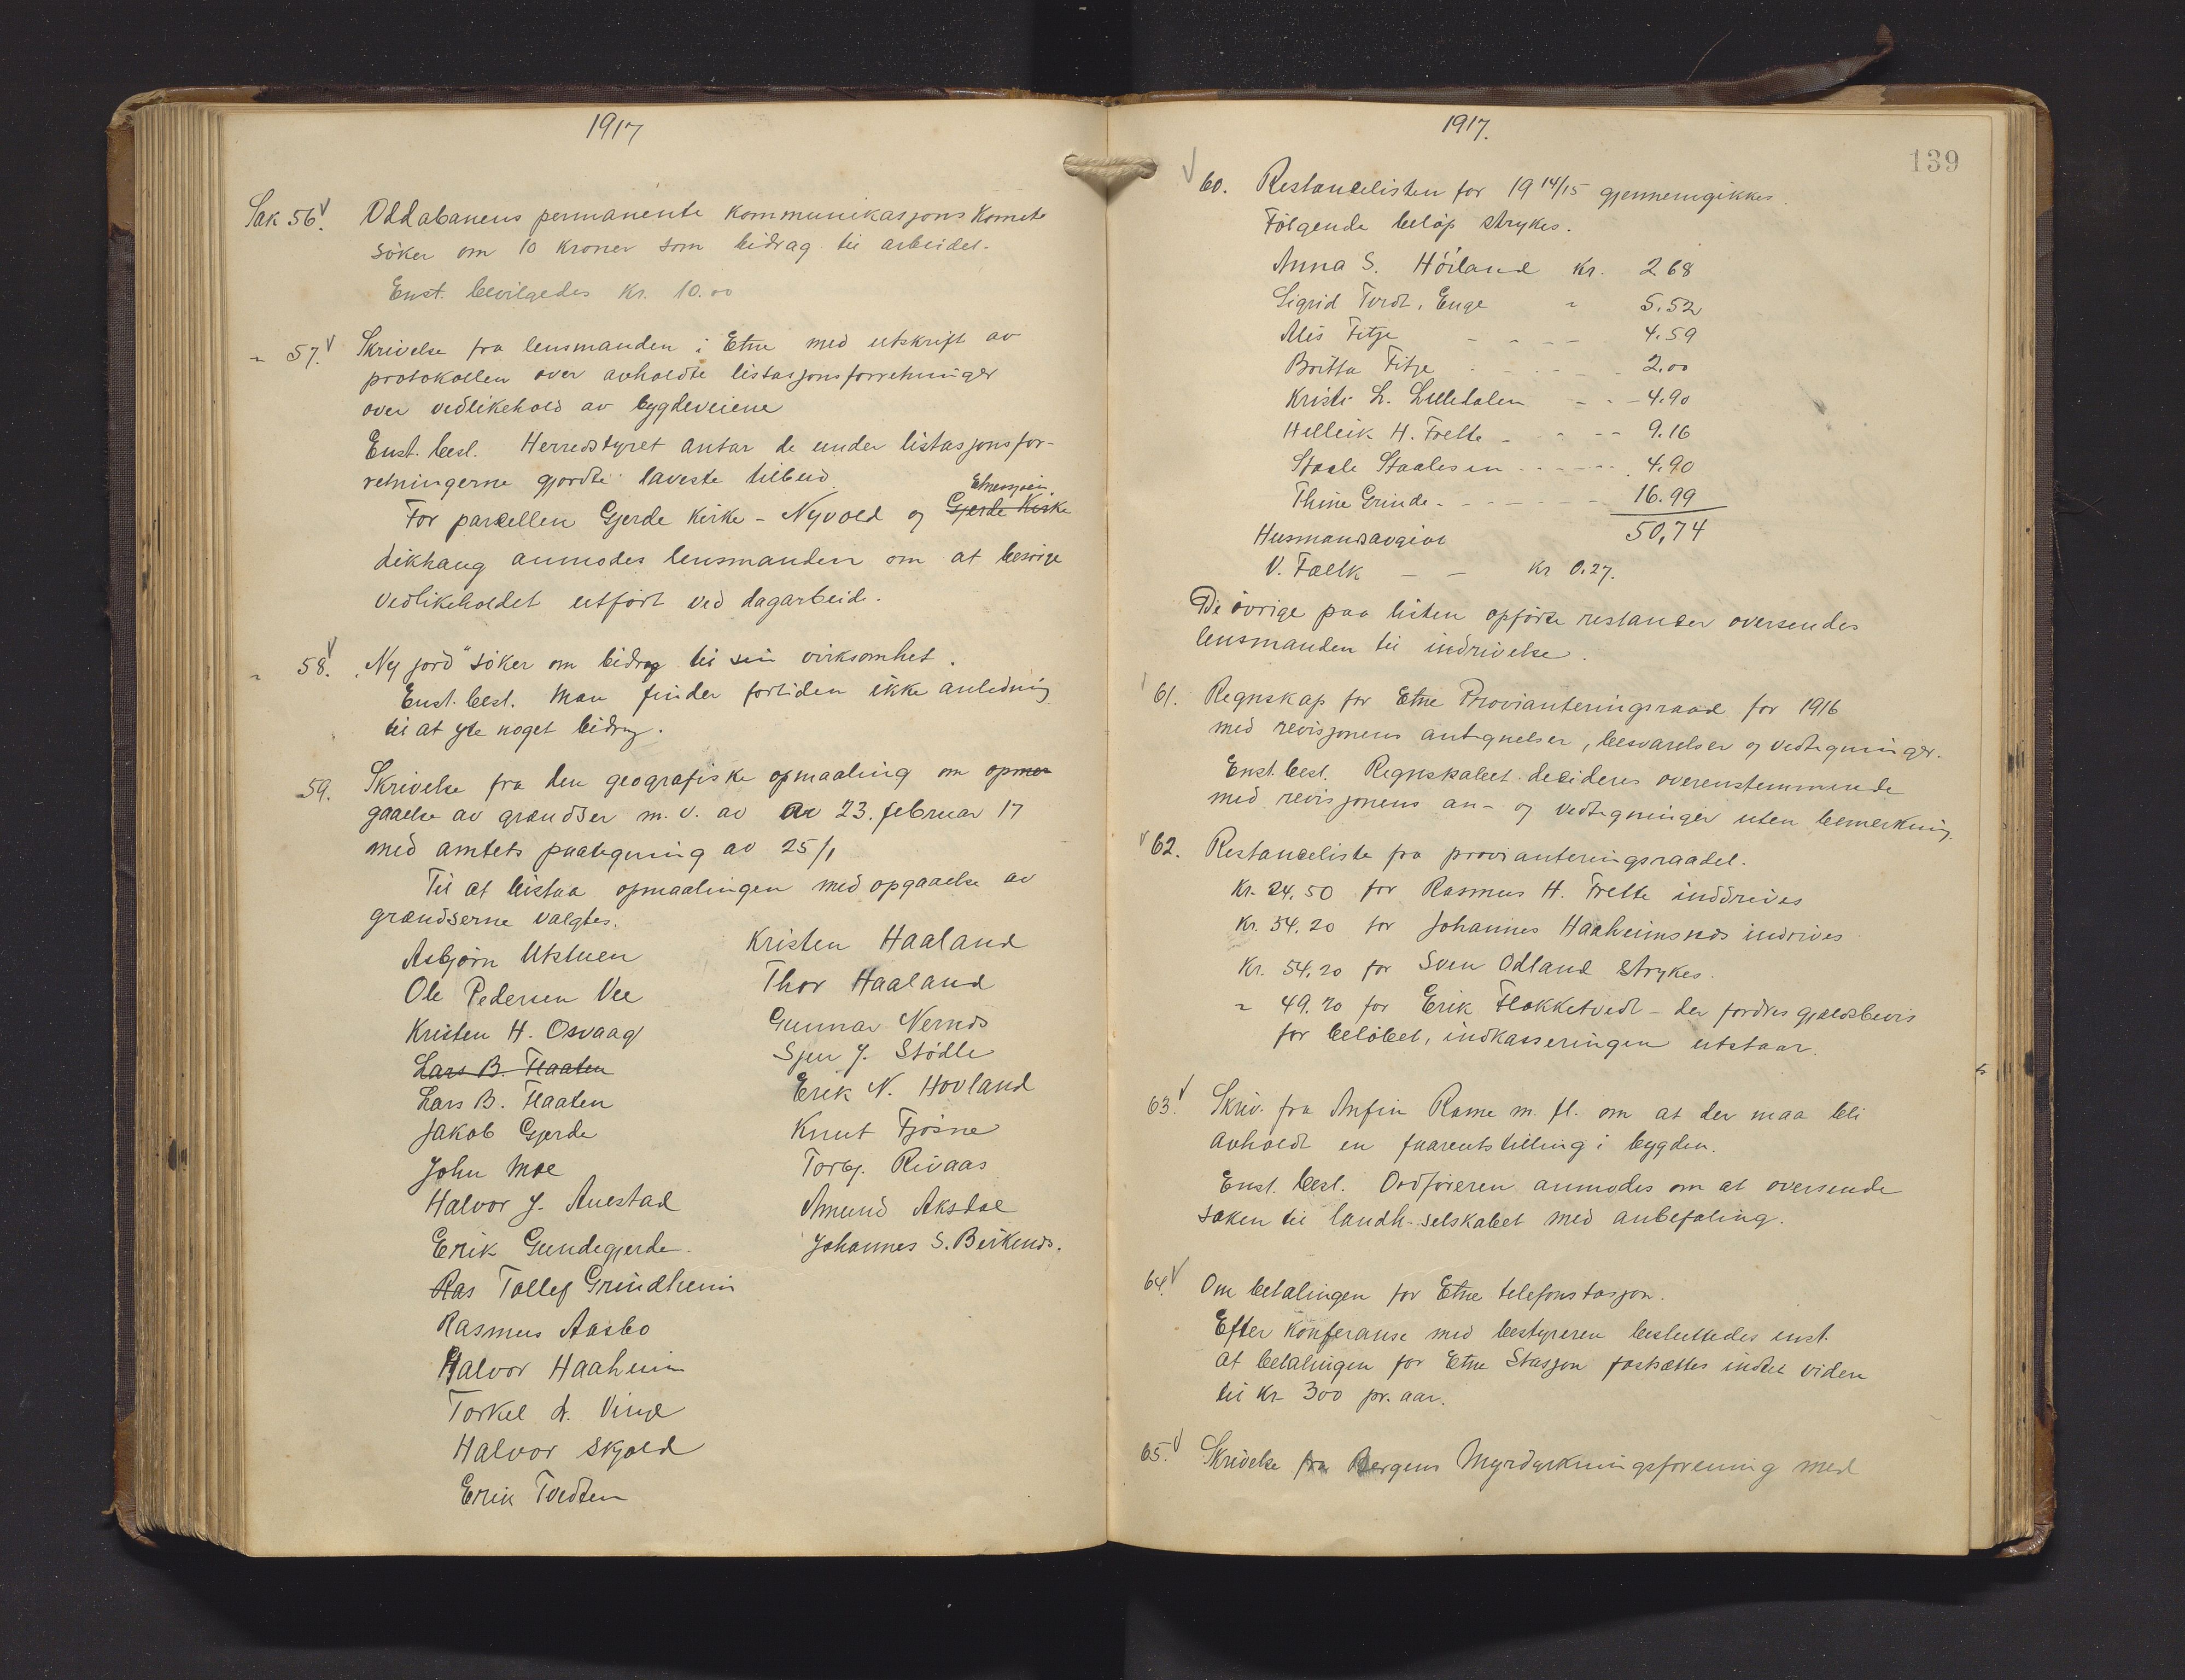 1917
Sak 56. Oddabanens permanente kommunikasjons komite
søker om 10 kroner som bidrag til arbeidet.
Enst. bevilgedes kr. 10.00
" 57. Skrivelse fra lensmanden i Etne med utskrift av
protokollen over avholdte listasjonsforretninger
over vedlikehold av bygdeveiene
Enst. besl. Herredstyret antar de under listasjonsfor-
retningerne gjordte laveste tilbud.
Etnesjøen
For parcellen Gjerde kirke - Nyvold og Gjerde Kirke
dikhaug anmodes lensmanden om at besørge
vedlikeholdet utført ved dagarbeide.
" 58. "Ny jord" søker om bidrag til sin virksomhet.
Enst. besl. Man finder fortiden ikke anledning
til at yte noget bidrag.
59. Skrivelse fra den geografiske opmaaling om opmer
gaaelse av grændser m. v. av av 23. februar 17
med amtets paategning av 25/1
Til at bistaa opmaalingen med opgaaelse av
grændserne valgtes.
Asbjørn Utstuen
Ole Pedersen Vee
Kristen H. Osvaag
Lars B. Flaaten
Lars B. Flaaten
Jakob Gjerde
John Moe
Halvor J. Austad
Erik Gundegjerde
Ras Tollef Grindheim
Rasmus Aasbo
Halvor Haaheim
Torkel A. Vinje
Halvor Skjold
Erik Tvedten
Kristen Haaland
Thor Haaland
Gunnar Nernes
Sjur J. Stødle
Erik N. Hovland
Knut Fjøsne
Torbj. Rivaas
Amund Aksdal
Johannes S. Birkenes.
1917.
139
60. Restancelisten for 1914/15 gjennemgikkes.
Følgende beløp strykes.
Anna S. Høiland kr. 2 68
Sigrid Tordt. Enge " 5.52
Alis Fitje - - - - 4.59
Britta Fitje - - - - 2.00
Kristi L. Lilledalen - - - 4.90
Helleik H. Frette - - - - 9.16
Staale Staalesen - - - - 4.90
Thine Grinde - - - - - 16.99
50,74
Husmandsavgivt
V. Fælk - - kr 0.27.
De øvrige paa listen opførte restanser oversendes
lensmanden til indrivelse.
61. Regnskap for Etne Provianteringsraad for 1916
med revisjonens antegnelser, besvarelser og vedtegninger.
Enst. besl. Regnskabet decideres overenstemmende
med revisjonens an- og vedtegninger uten bemerkning.
62. Restanceliste fra provianteringsraadet.
Kr. 24.50 for Rasmus H. Frette inddrives
Kr. 34.20 for Johannes Haaheimsnes indrives
Kr. 54.20 for Sven Ødland strykes.
" 49.20 for Erik Flokketvedt - der fordres gjældsbevis
for beløbet, indkasseringen utstaar.
63. Skriv. fra Anfin Rame m. fl. om at der maa bli
avholdt en faareutstilling i bygden.
Enst. besl. Ordføreren anmodes om at oversende
saken til landh. selskabet med anbefaling.
64. Om betalingen for Etne telefonstasjon.
Efter konferanse med bestyreren besluttedes enst.
at betalingen for Etne Stasjon fastsættes indtil videre
til kr 300 pr. aar.
65. Skrivelse fra Bergens Myrdyrkningsforening med